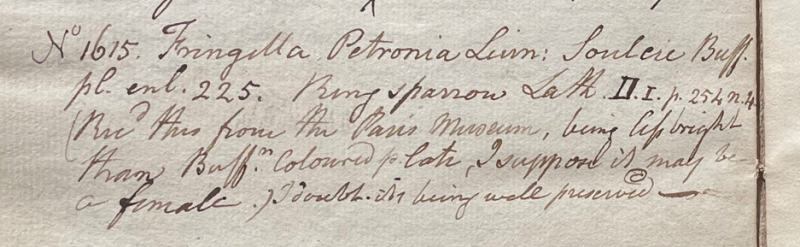 No 1615. Fringella Petronia Linn: Soulcie Buff.
pl. enl. 225. Ring sparrow Lath. II.I. p. 254 n. 4
(Recd this from the Paris Museum, being less bright
than Buffn. Coloured plate, I suppose it may be
a female.) I doubt its being well preserved